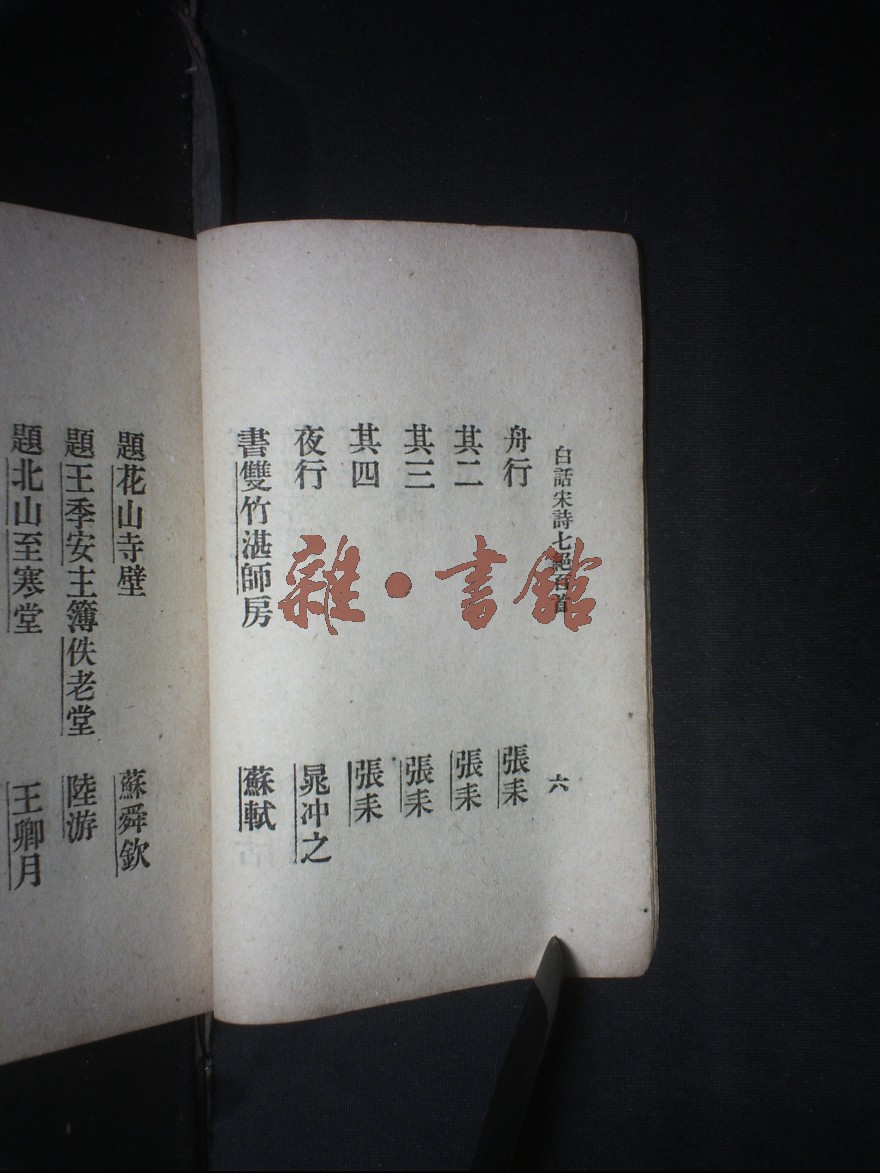 白話宋詩七絕百首
六
舟行 張耒
其二 張耒
其三 張耒
其四 張耒
夜行 晁冲之
書雙竹湛師房 蘇軾
題花山寺壁 蘇舜欽
題王季安主簿佚老堂 陸游
題北山至寒堂 王卿月
雜·書館